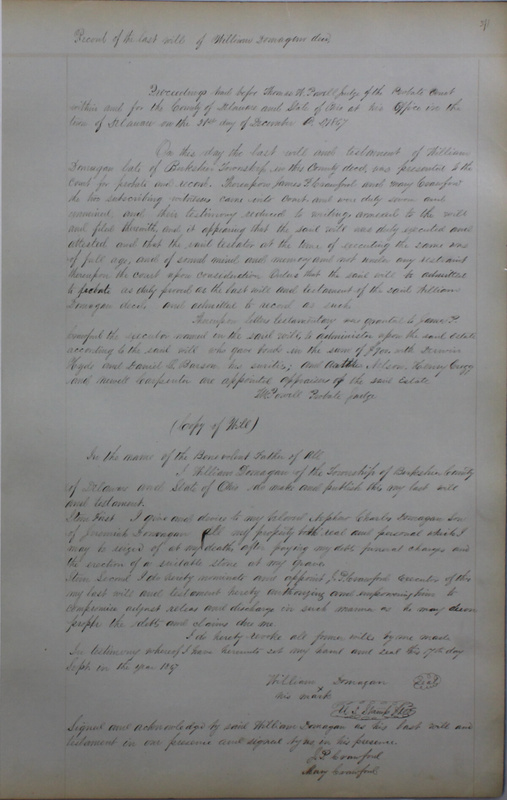 Record of the last will of William Domagan decd
Proceedings had before Thomas W. Powell Judge of the Probate Court
within and for the County of Delaware and State of Ohio at his Office in the
town of Delaware on the day of December AD 1867
On this day the last will and testament of William
Domagan late of Berkshire Township in this County decd, was presented to the
court for probate and record. Thereupon James P Crawford and Mary Crawford
the two subscribing witnesses came into Court and were duly sworn and
examined, and their testimony reduced to writing, annexed to the will
and filed therewith, and it appearing that the said will was duly executed and
attested and that the said testator at the time of executing the same was
of full age, and of sound mind and memory and not under any restraint
thereupon the court upon consideration orders that the said will be admitted
to probate as duly proved as the last will and testament of the said William
Domagan decd. and admitted to record as such.
Thereupon letters testamentary was granted to James P.
Crawford the executor named in the said will, to administer upon the said estate
according to the said will who gave bonds in the sum of with
and Daniel his sureties; and Nelson, Henry
and Carpenter are appointed appraisers of the said Estate
Powell Probate Judge
(Copy of Will)
In the name of the Benevolent Father of All
I William Domagan of the Township of Berkshire County
of Delaware and State of Ohio do make and publish this my last will
and testament.
Item First. I give and devise to my beloved Nephew Charles Domagan Son
of Jeremiah Domagan all my property both real and personal which I
may be seized of at my death, after paying my debts funeral charges and
the erection of a suitable stone at my grave.
Item Second I do hereby nominate and appoint J. P. Crawford Executor of this
my last will and testament hereby authorizing and empowering him to
compromise adjust release and discharge in such manner as he may deem
proper the debts and claims due me.
I do hereby revoke all former wills by me made
In testimony whereof I have hereunto set my hand and seal this 17th day
Sept. in the year 1867
William Domagan Seal
his mark
Signed and acknowledged by said William Domagan as his last will and
testament in our presence and signed by us in his presence.
J. P. Crawford
Mary Crawford